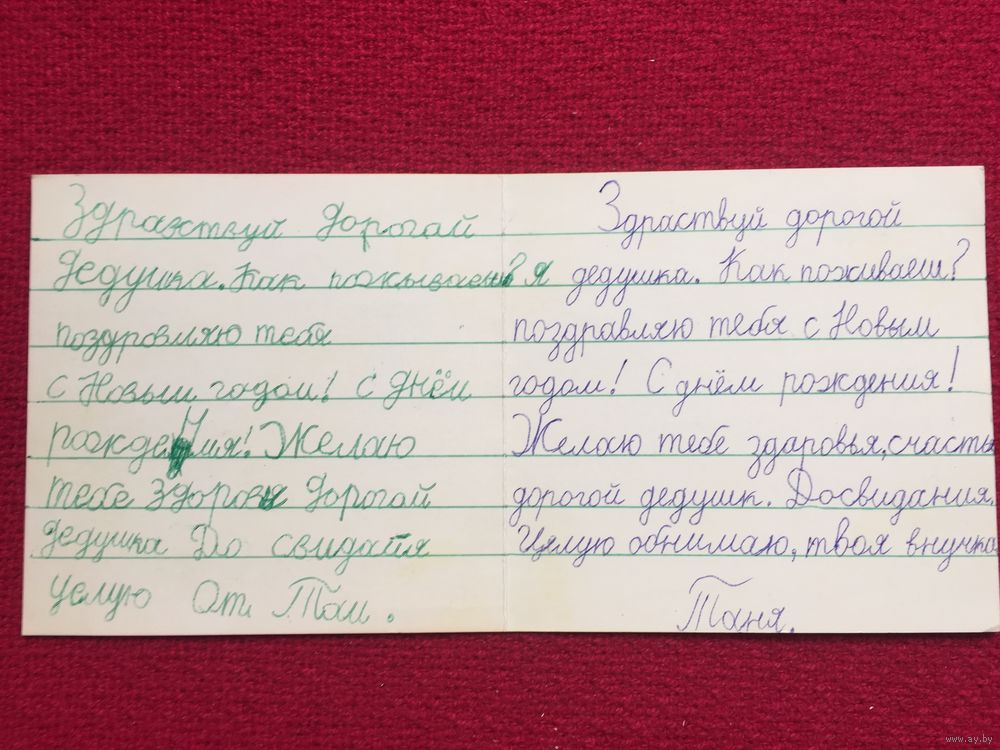 Здравствуй дорогай
дедушка. Как пожываеш?
поздровляю тебя
с Новым годом! С днём
рождения! Желаю
тебе здоровя дорогай
дедушка До свидатя
целую От Тан.
Здраствуй дорогой
я дедушка. Как поживаеш?
поздравляю тебя с Новым
годом! С днём рождения!
Желаю тебе здаровья, счасть
дорогой дедушк. Досвидания.
Целую обнимаю, твоя внучка
Таня.
www.ay.by